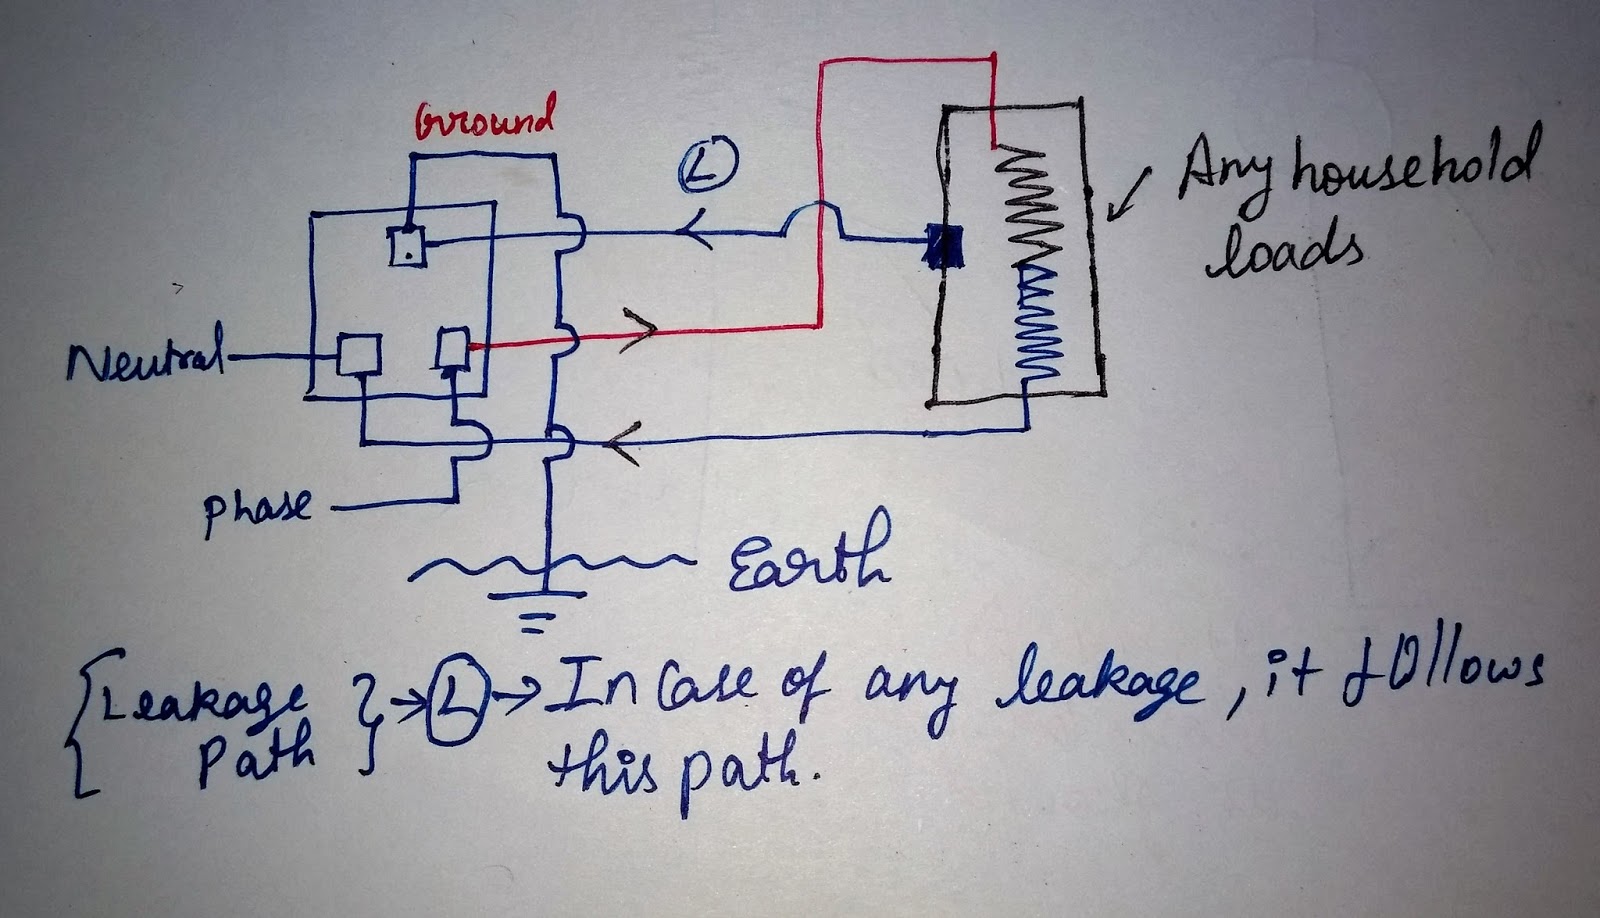 Ground
L
Any household
loads
Neutral
Phase
Earth
{Leakage
Path} → L → In case of any leakage, it follows
this path.